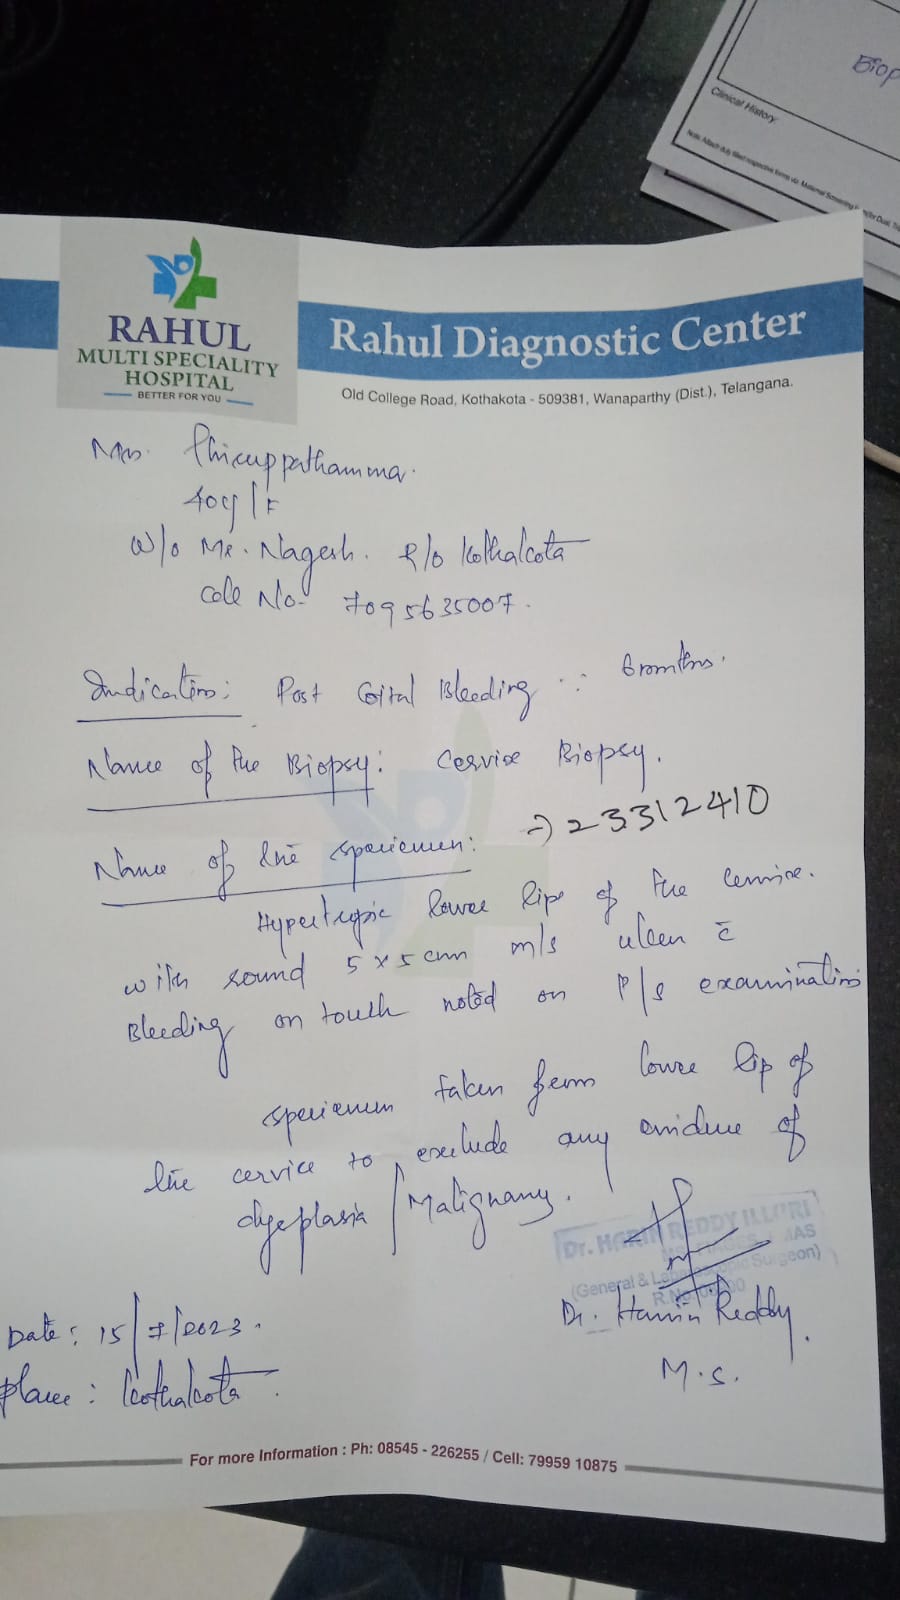 Biop
Clinical History
RAHUL
MULTI SPECIALITY
HOSPITAL
BETTER FOR YOU
Rahul Diagnostic Center
Old College Road, Kothakota - 509381, Wanaparthy (Dist.), Telangana.
Mrs.
40y/F
W/o Mr. Nagesh. R/o Kothakota
Cell No- 7095635007.
Indication: Post Coital Bleeding ∵ 6 months.
Name of the Biopsy: Cervix Biopsy.
Name of the specimen: → 23312410
Hypertropic lower lip of the cervix.
with round 5x5 cm m/s ulcer c̄
Bleeding on touch noted on P/s examination
specimen taken from lower lip of
the cervix to exclude any evidence of
dysplasia / Malignancy.
(General & Laparoscopic Surgeon)
Dr. Reddy.
M.S.
Date: 15/7/2023.
Place: Kothakota
For more Information : Ph: 08545 - 226255 / Cell: 79959 10875